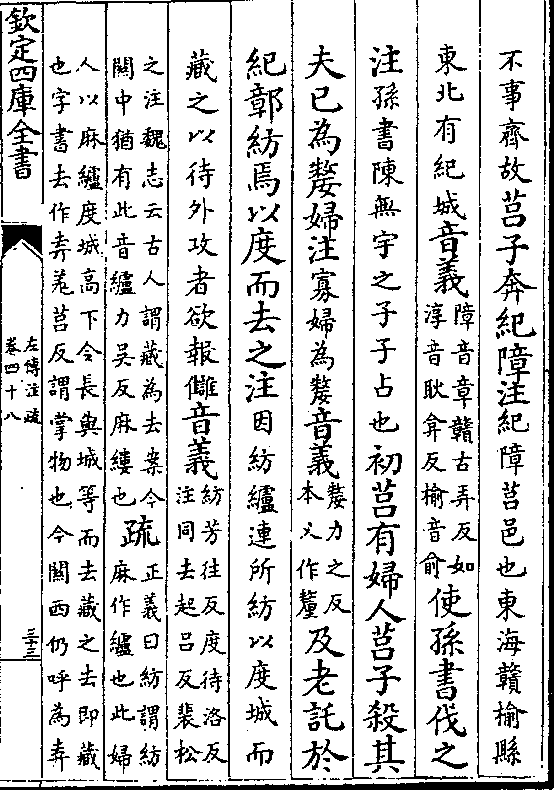 不事齊故莒子奔紀障注紀障莒邑也東海贛榆縣
東北有紀城音義障音章贛古弄反如
淳音耿弇反榆音俞使孫書伐之
注孫書陳無宇之子子占也初莒有婦人莒子殺其
夫已為嫠婦注寡婦為嫠音義嫠力之反
本又作釐及老託於
紀鄣紡焉以度而去之注因紡纑連所紡以度城而
藏之以待外攻者欲報讎音義紡芳往反度待洛反
注同去起呂反裴松
之注魏志云古人謂藏為去案今
關中猶有此音纑力吴反麻縷也疏正義曰紡謂紡
麻作纑也此婦
人以麻纑度城髙下令長與城等而去藏之去即藏
也字書去作弆羌莒反謂掌物也今關西仍呼為弆
欽定四庫全書
左傳注疏
卷四十八
三十三